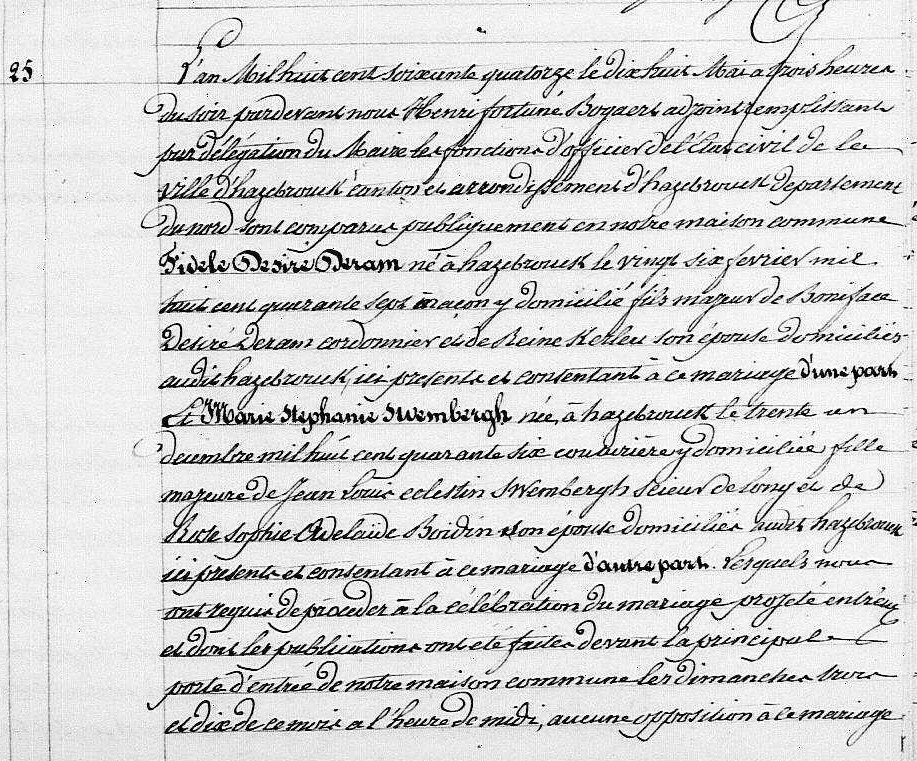 25
L'an Mil huit cent soixante quatorze le dix huit Mai a trois heures
du soir pardevant nous Henri fortuné Bogaert adjoint remplissant
par délégation du Maire les fonctions d'officier de l'Etat civil de la
ville d'hazebrouck canton et arrondissement d'hazebrouck département
du nord sont comparus publiquement en notre maison commune
Fidele Desiré Deram né à hazebrouck le vingt six fevrier mil
huit cent quarante sept maçon y domicilié fils majeur de Boniface
Desiré Deram cordonnier et de Reine Kerleu son épouse domiciliés
audit hazebrouck, ici presents et consentant à ce mariage d'une part
Et Marie Stephanie Swembergh née, à hazebrouck le trente un
decembre mil huit cent quarante six couturière y domiciliée fille
majeure de Jean Louis celestin Swembergh scieur de long et de
Rose sophie Adelaïde Boidin son épouse domiciliés audit hazebrouck
ici presents et consentant à ce mariage d'autre part. Lesquels nous
ont requis de procéder à la célébration du mariage projeté entr'eux
et dont les publications ont été faites devant la principale
porte d'entrée de notre maison commune les dimanches trois
et dix de ce mois a l'heure de midi, aucune opposition à ce mariage